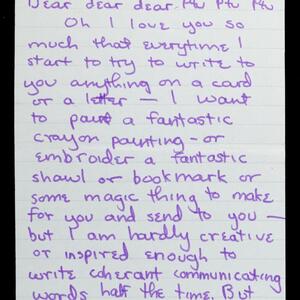 Dear dear dear Ptu Ptu Ptu
Oh I love you so
much that everytime I
start to try to write to
you anything on a card
or a letter — I want
to paint a fantastic
crayon painting - or
embroider a fantastic
shawl or bookmark or
some magic thing to make
for you and send to you —
but I am hardly creative
or inspired enough to
write coherant communicating
words half the time. But